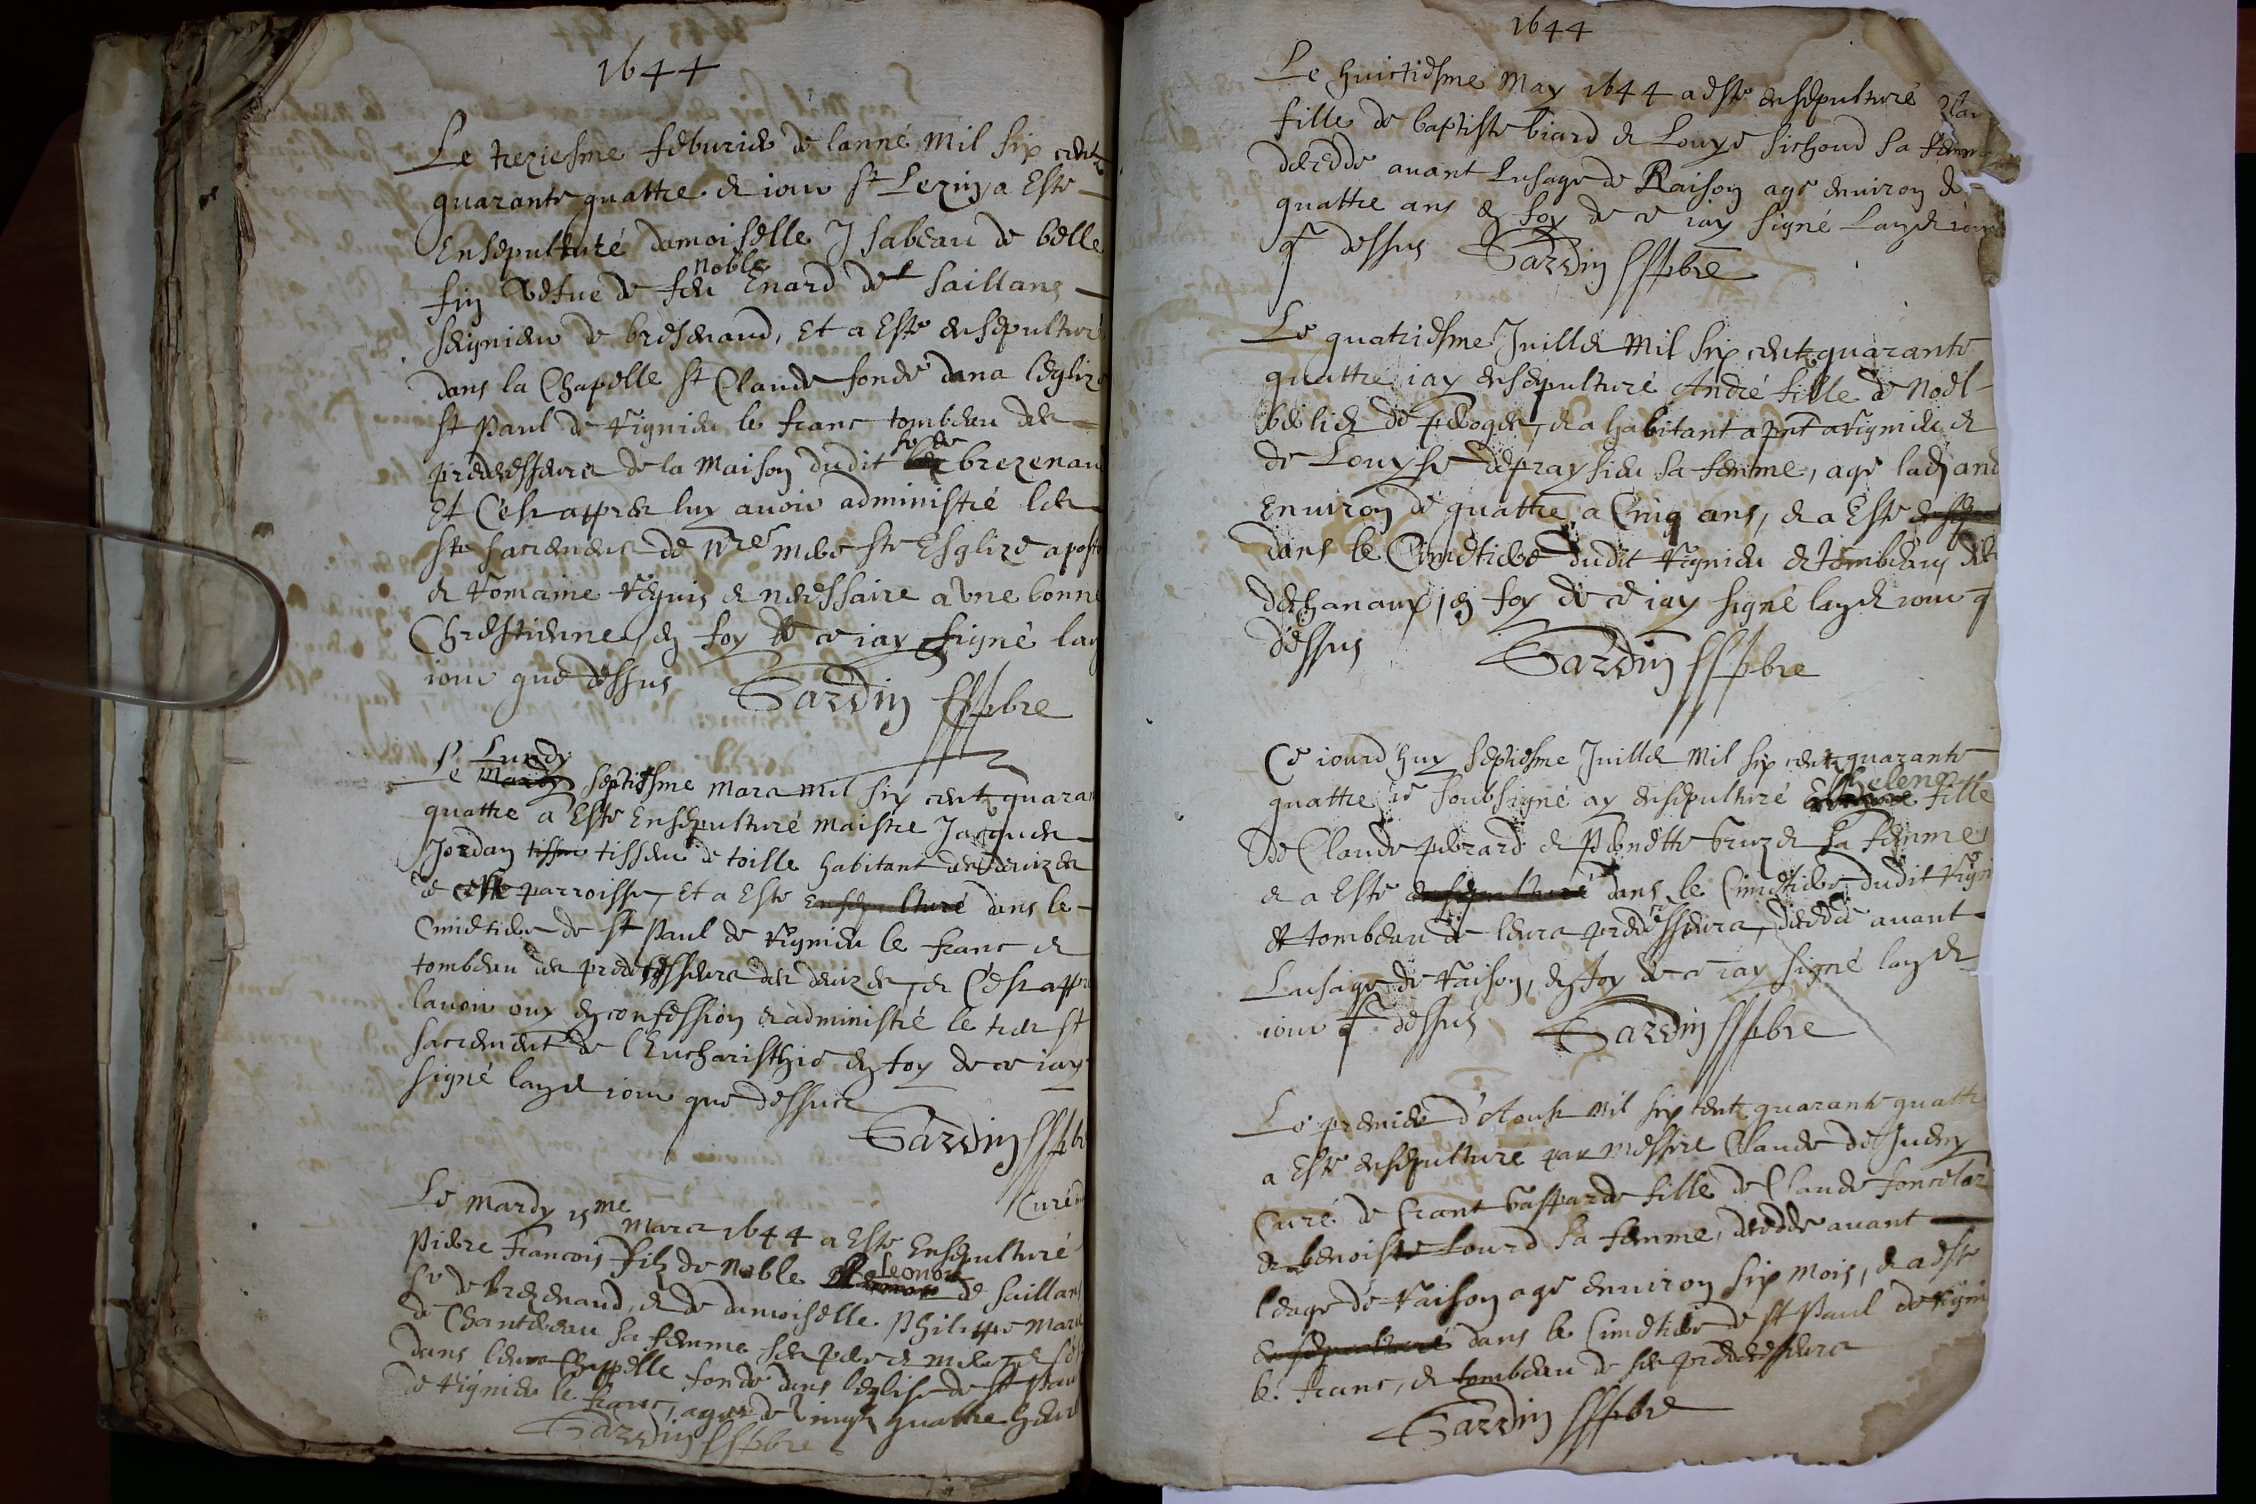 1644
Le treziesme feburier de lanné mil six centz
quarante quattre et iour st Lezin a Esté
Ensepulturé damoiselle Isabeau de belle
fin vefue de feu noble Enard de Saillans
seigneur de bresenaud, Et a Esté ensepulturé
dans la Chapelle st Claude fondé dans leglize
st Paul de Vignieu le franc tombeau des
predecesseurs de la Maison dudit sr de brezenau
Et C'est apprez luy auoir administré les
sts sacremens de nre mere ste Esglize apost
et romaine requis et necessaire a vne bonne
Chrestienne, en foy de ce iay signé lan
iour que dessus Gardin pbre
Le Lundy septiesme mars mil six centz quaran
quattre a Esté Ensepulturé maistre Jacques
Jordan tisseu tisseur de toille habitant des
de ceste parroisse, Et a Esté ensepulturé dans le
Cimetiere de st Paul de Vignieu le franc et
tombeau des predecesseurs des et C'est appre
lauoir ouy en confession et administré le tres st
sacrement de l'Eucharisthie en foy de ce iay
signé lan et iour que dessus
Gardin pbr
Curé
Le mardy 15me mars 1644 a Esté Ensepulturé
Pierre francois filz de Noble Leonor de Saillans
sr de brezenaud, et de damoiselle Philippe Marie
de sa femme ses pere et mere
dans leur Chappelle fondé dans leglise de st Paul
de Vignieu le franc, agé de vingt quattre heur
Gardin pbre
1644
Le huictiesme May 1644 a esté ensepulturé
fille de baptiste biard et Louyse sa femme
decedde auant Lusage de Raison agé enuiron de
quattre ans en foy de ce iay signé Lan et iour
q dessus Gardin pbre
Le quatriesme Juillet mil six centz quarante
quattre iay ensepulturé André fille de Noel
de et a habitant a pnt a Vignieu et
de Louyse sa femme, agé
Enuiron de quattre a Cinq ans, et a Esté ensepu
dans le Cimetiere dudit Vignieu et tombeau
en foy de ce iay signé lan et iour q
dessus Gardin pbre
Ce iourd'huy septiesme Juillet mil six centz quarante
quattre ie soubsigné ay ensepulturé helene fille
de Claude perard et sa femme,
et a Esté ensepulturé dans le Cimetiere dudit Vign
et tombeau de leurs predecesseurs, decedde auant
Lusage de raison, en foy de ce iay signé lan et
iour q dessus Gardin pbre
Le premier d'Aoust mil six centz quarante quattre
a Esté ensepulturé par messire Claude de
Curé de Crant Gasparde fille de Claude
et benoiste Lourd sa femme, decedde auant
leage de raison agé enuiron six mois, et a esté
ensepulturé dans le Cimetiere de st Paul de Vigni
le franc, et tombeau de ses predecesseurs
Gardin pbre